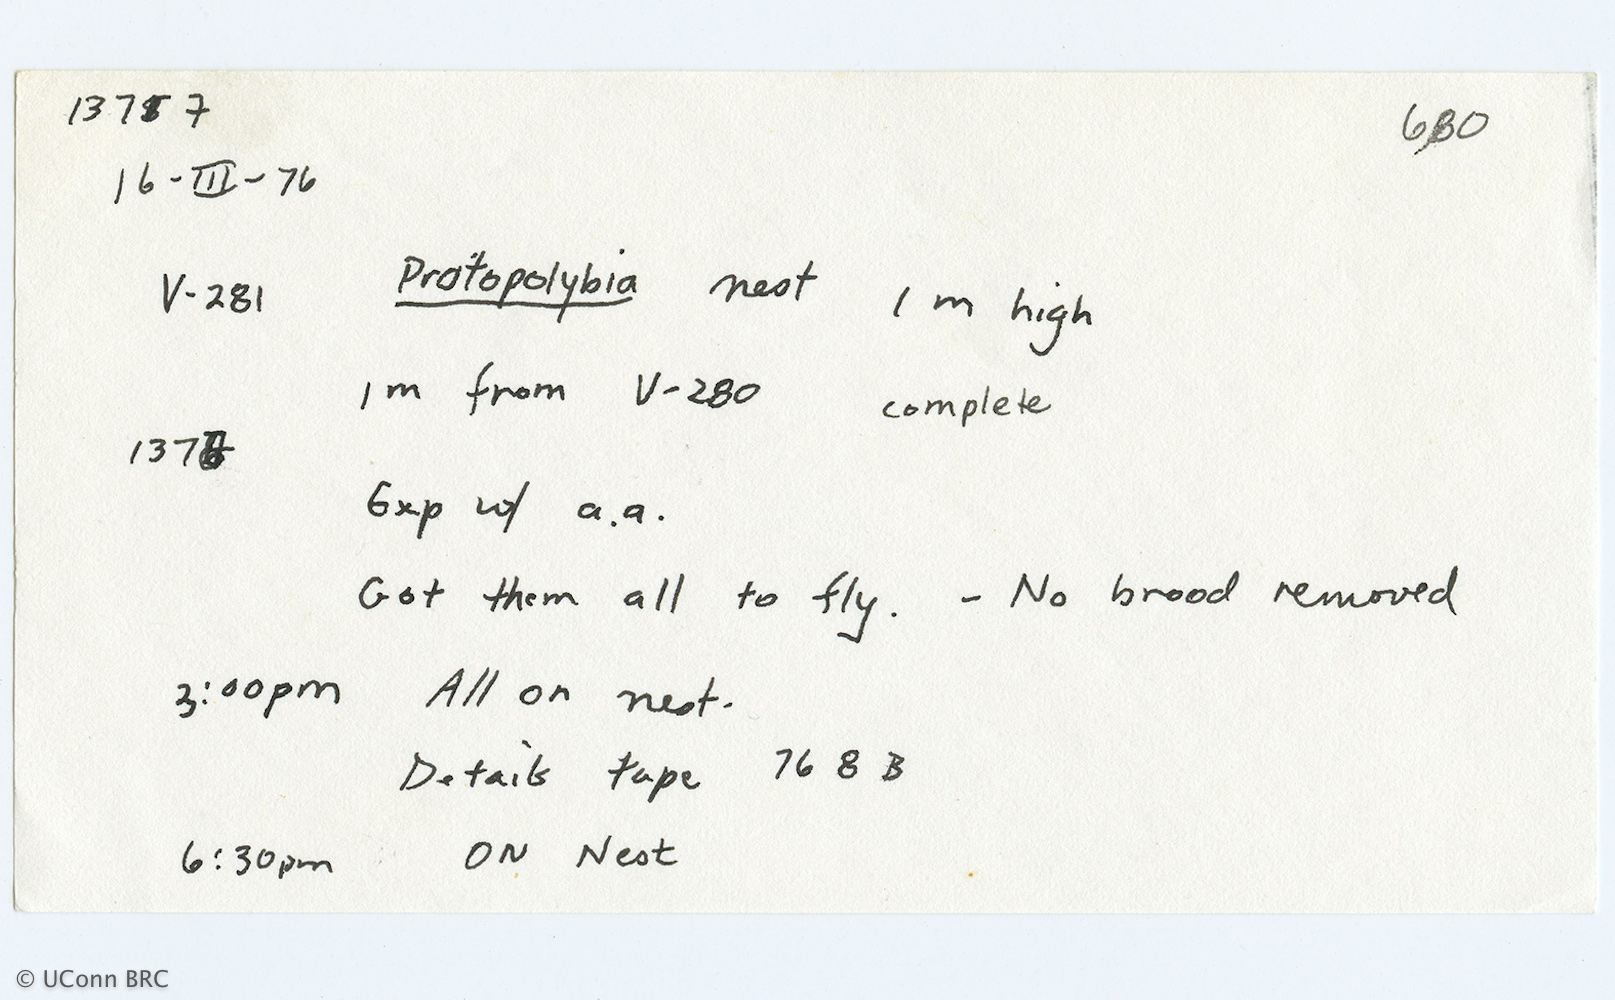 1377
680
16-III-76
V-281 Protopolybia nest 1 m high
1m from V-280 complete
137
Exp w/ a.a.
Got them all to fly. - No brood removed
3:00pm All on nest.
Details tape 76 8 B
6:30pm ON Nest
© UConn BRC